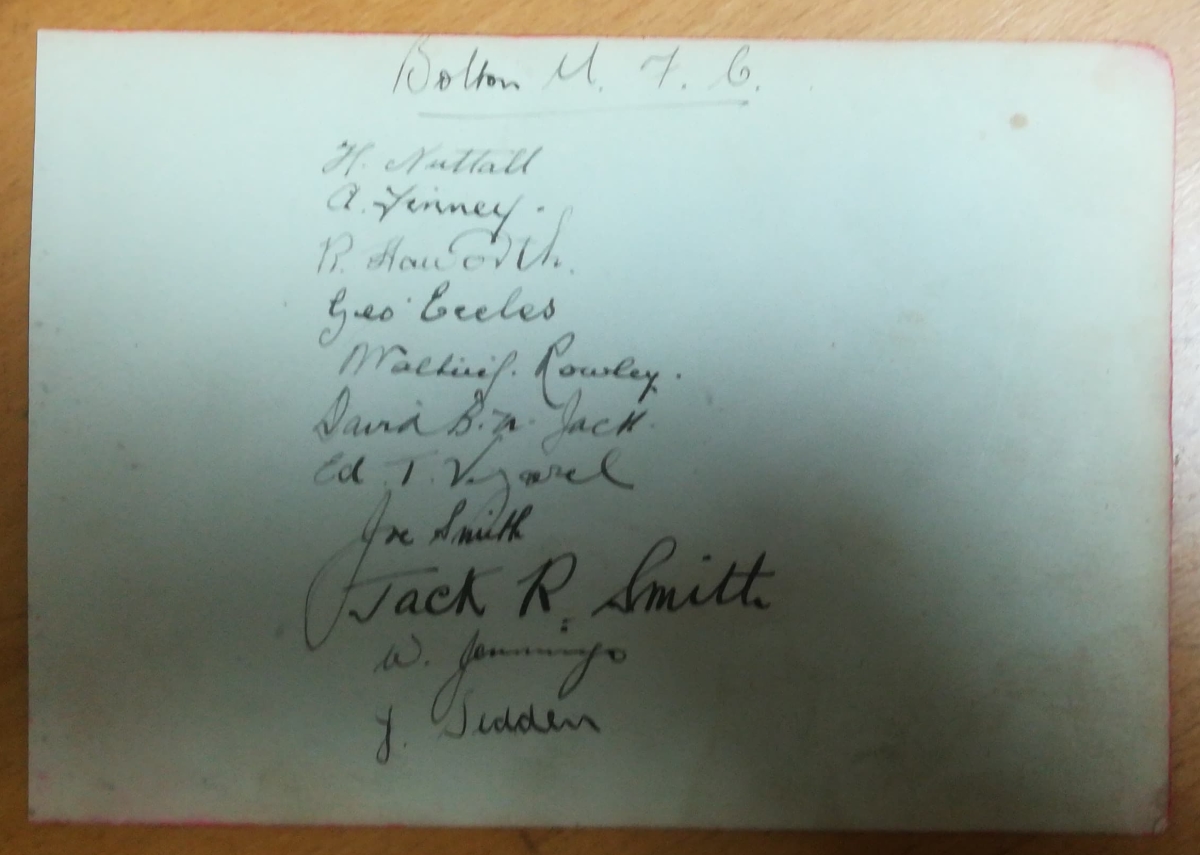 Bolton U. F. C.
H. Nuttall
A. Finney.
R. Haworth.
Geo Eccles
Walter Rowley.
David B. N. Jack.
Ed. T. Vizard
Joe Smith
Jack R. Smith
W. Jennings
J. Seddon